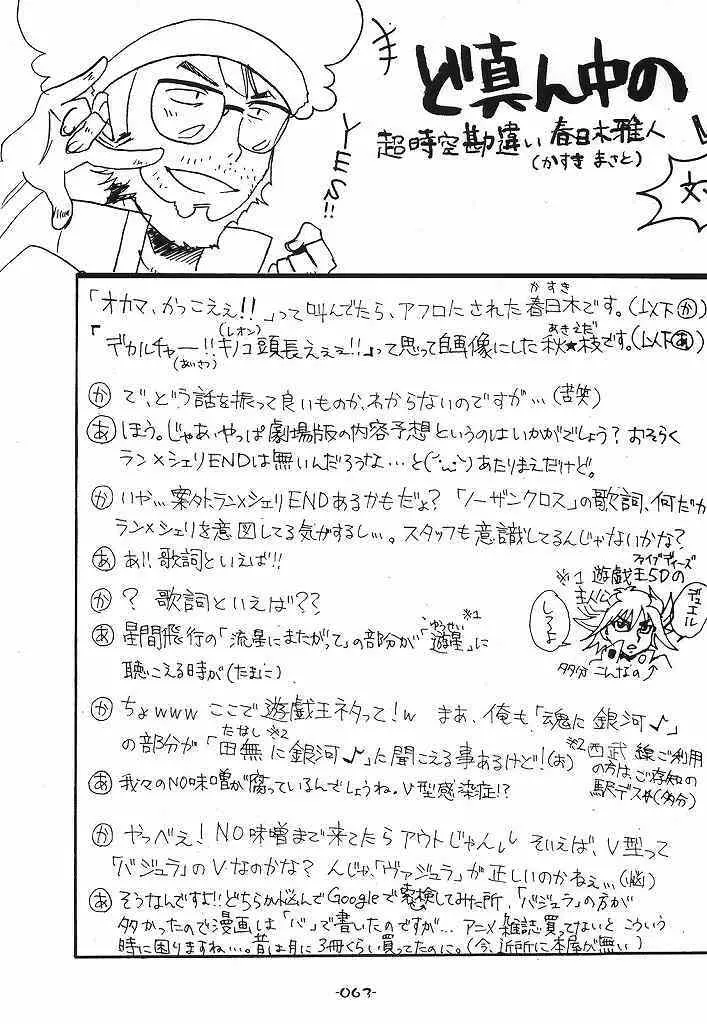 ど真ん中の
超時空勘違い 春日木雅人
(かすき まさと)
YES!!
「オカマ、かっこえぇ!!」って叫んでたら、アフロにされた春日木です。(以下か)
かすき
「デカルチャー!!キノコ頭長えぇぇ!!」って思って自画像にした秋★枝です。(以下あ)
(あいさつ)
(レオン)
あきえだ
か で、どう話を振って良いものか、わからないのですが…(苦笑)
あ ほう。じゃあ、やっぱ劇場版の内容予想というのはいかがでしょう?おそらく
ラン×シェリENDは無いんだろうな…と(´・ω・`)あたりまえだけど。
か いや…案外トラン×シェリENDあるかもだよ?「ノーザンクロス」の歌詞、何だか
ラン×シェリを意図してる気がするし…。スタッフも意識してるんじゃないかな?
あ あ!!歌詞といえば!!
か ? 歌詞といえば??
あ 星間飛行の「流星にまたがって」の部分が「遊星」に
ゆうせい
※1
聴こえる時が(たまに)
※1 遊戯王5Dの
ファイブディーズ
主人公
デュエル
してろよ
多分こんなの
か ちょwww ここで遊戯王ネタって!w まあ、俺も「魂に銀河♪」
の部分が「田無に銀河♪」に聞こえる事あるけど!(お)
たなし ※2
※2 西武線ご利用
の方は、ご存知の
駅デス(多分)
あ 我々のNO味噌が腐っているんでしょうね。V型感染症!?
か やっべえ!NO味噌まで来てたらアウトじゃん そいえば、V型って
「バジュラ」のVなのかな? んじゃ、「ヴァジュラ」が正しいのかねぇ…(悩)
あ そうなんですよ!!どちらか悩んでGoogleで検索してみた所、「バジュラ」の方が
多かったので漫画は「バ」で書いたのですが… アニメ雑誌買ってないとこういう
時に困りますねぃ…。昔は月に3冊くらい買ってたのに。(今、近所に本屋が無い)
-063-